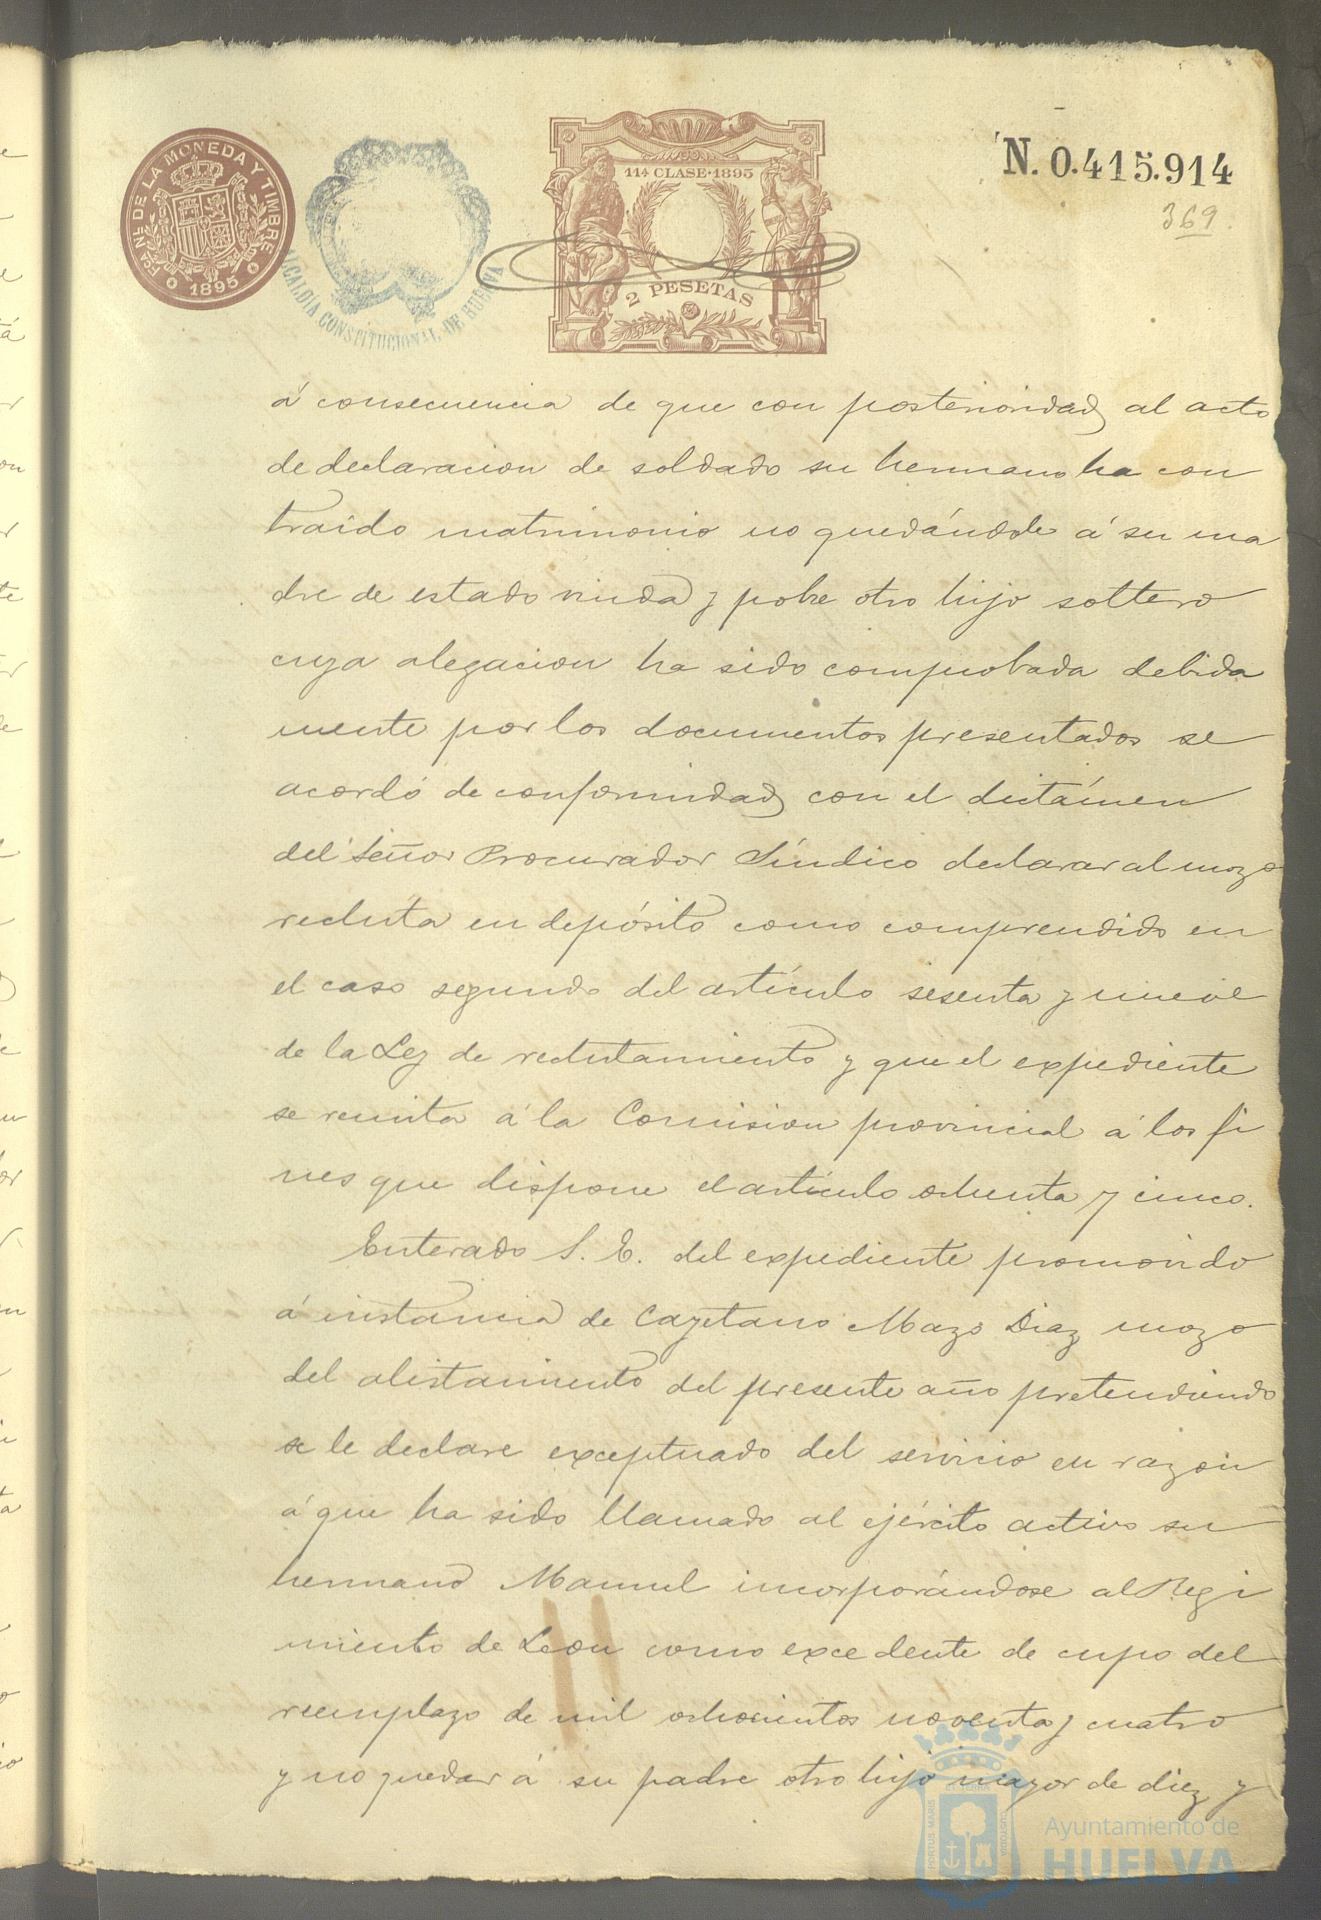 FCA NAL DE LA MONEDA Y TIMBRE
1895
ALCALDÍA CONSTITUCIONAL DE HUELVA
11ª CLASE·1895
2 PESETAS
N. 0.415.914
369.
á consecuencia de que con posterioridad al acto
de declaracion de soldado su hermano ha con
traido matrimonio no quedándole á su ma
dre de estado viuda y pobre otro hijo soltero
cuya alegacion ha sido comprobada debida
mente por los documentos presentados se
acordó de conformidad con el dictámen
del Señor Procurador Síndico declarar al mozo
recluta en depósito como comprendido en
el caso segundo del artículo sesenta y nueve
de la Ley de reclutamiento y que el expediente
se remita á la Comision provincial á los fi
nes que dispone el artículo ochenta y cinco.
Enterado S. E. del expediente promovido
á instancia de Cayetano Mazo Diaz mozo
del alistamiento del presente año pretendiendo
se le declare exceptuado del servicio en razon
á que ha sido llamado al ejército activo su
hermano Manuel incorporándose al Regi
miento de Leon como excedente de cupo del
reemplazo de mil ochocientos noventa y cuatro
y no quedar á su padre otro hijo mayor de diez y
PORTUS MARIS ET TERRÆ CUSTODIA
Ayuntamiento de
HUELVA